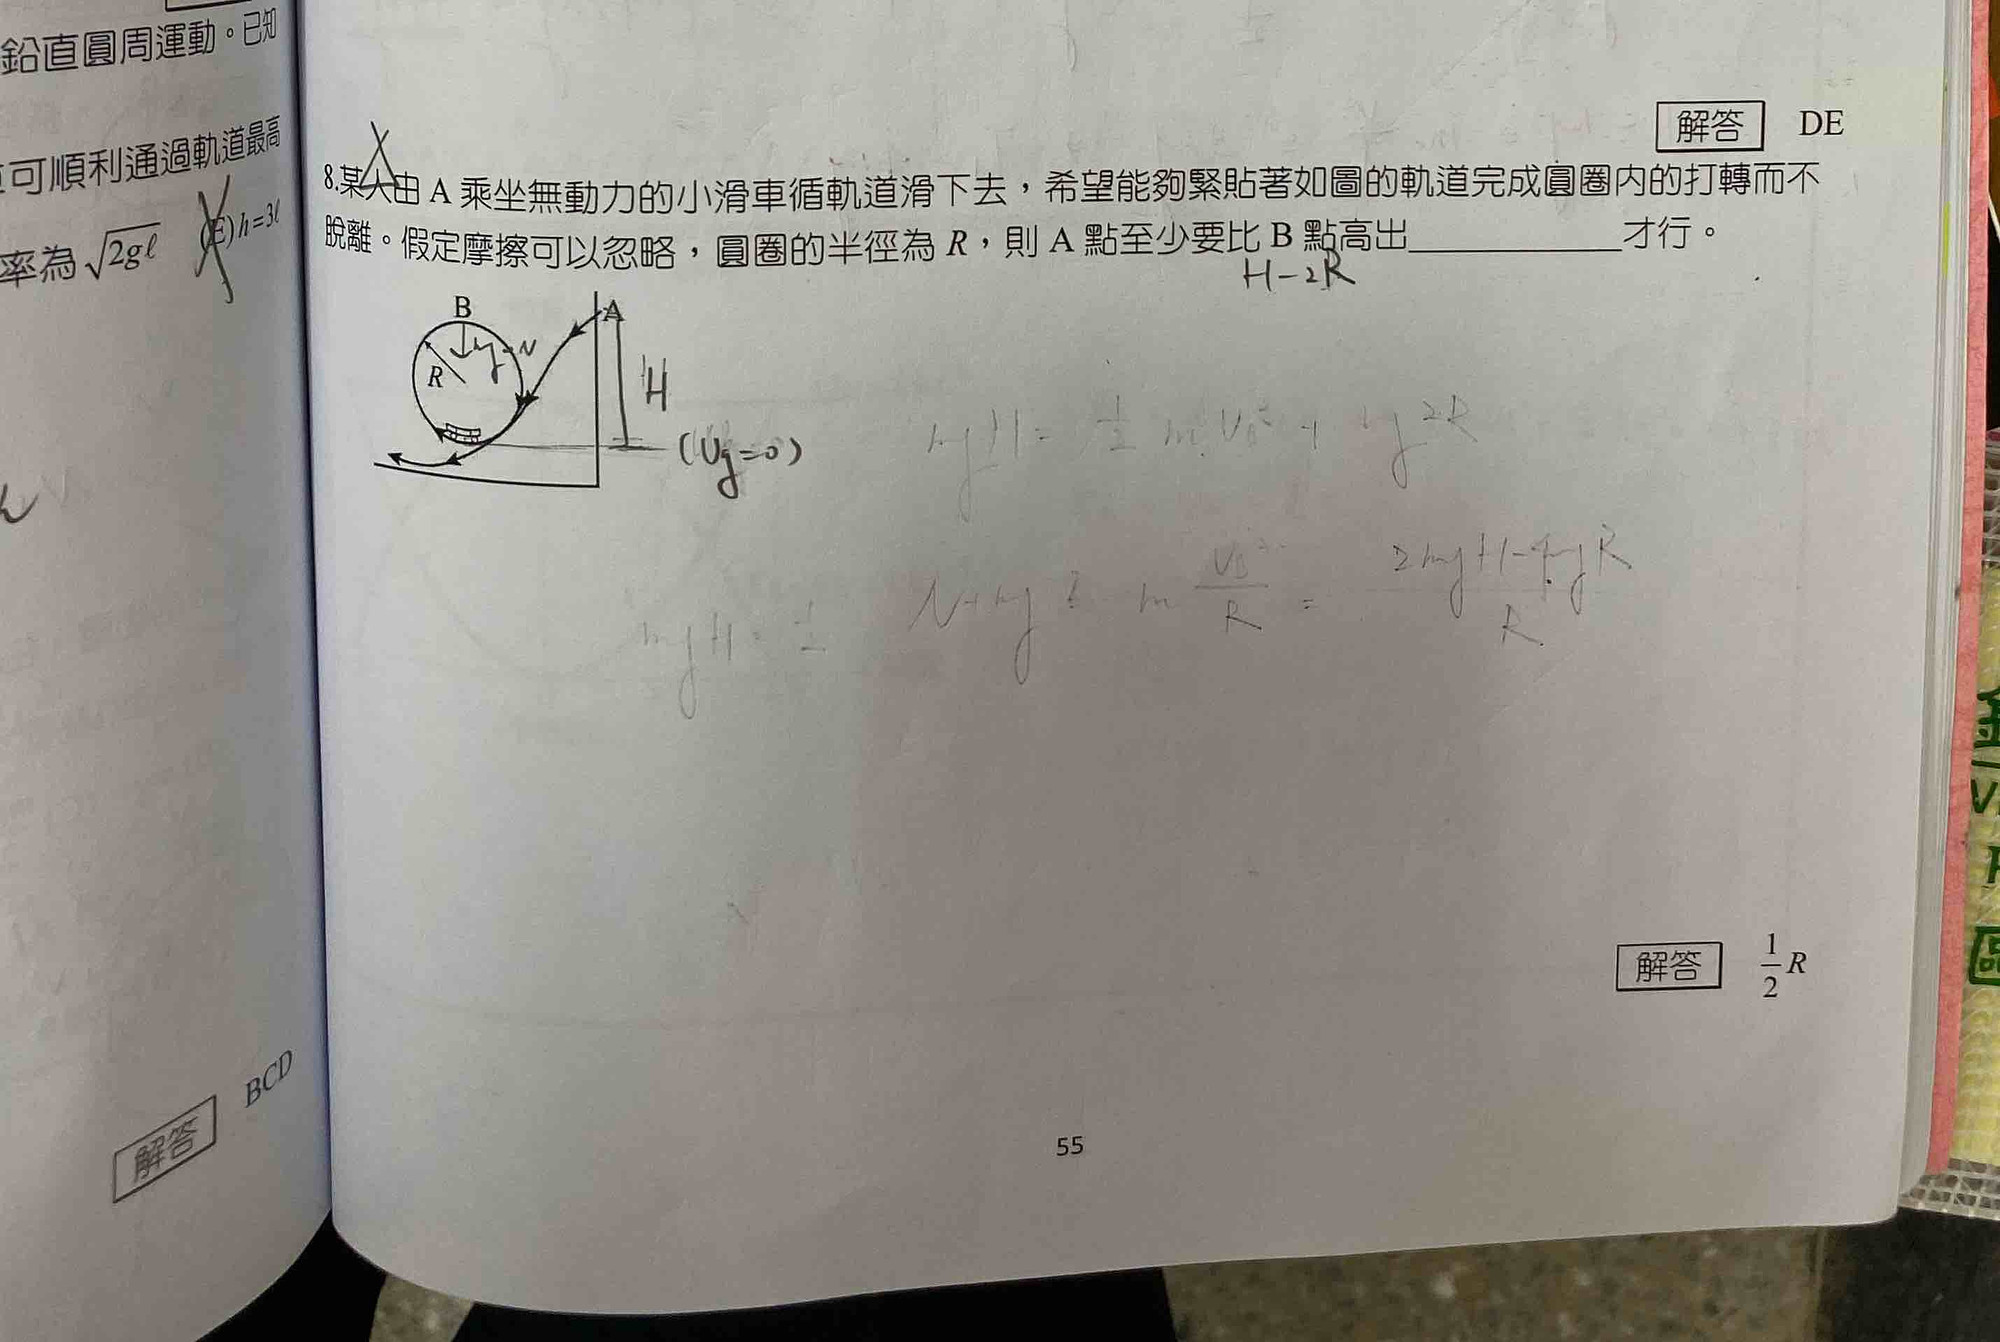 鉛直圓周運動。已知
可順利通過軌道最高
率為 √2gℓ (E) h=3ℓ
解答 BCD
解答 DE
8.某人由 A 乘坐無動力的小滑車循軌道滑下去，希望能夠緊貼著如圖的軌道完成圓圈內的打轉而不
脫離。假定摩擦可以忽略，圓圈的半徑為 R，則 A 點至少要比 B 點高出____________才行。
H-2R
B
A
R
mg+N
H
(Ug=0)
mgH = 1/2 m VB² + mg2R
N+mg = m VB²/R = (2mgH-4mgR)/R
mgH = 1/2
解答 1/2 R
55